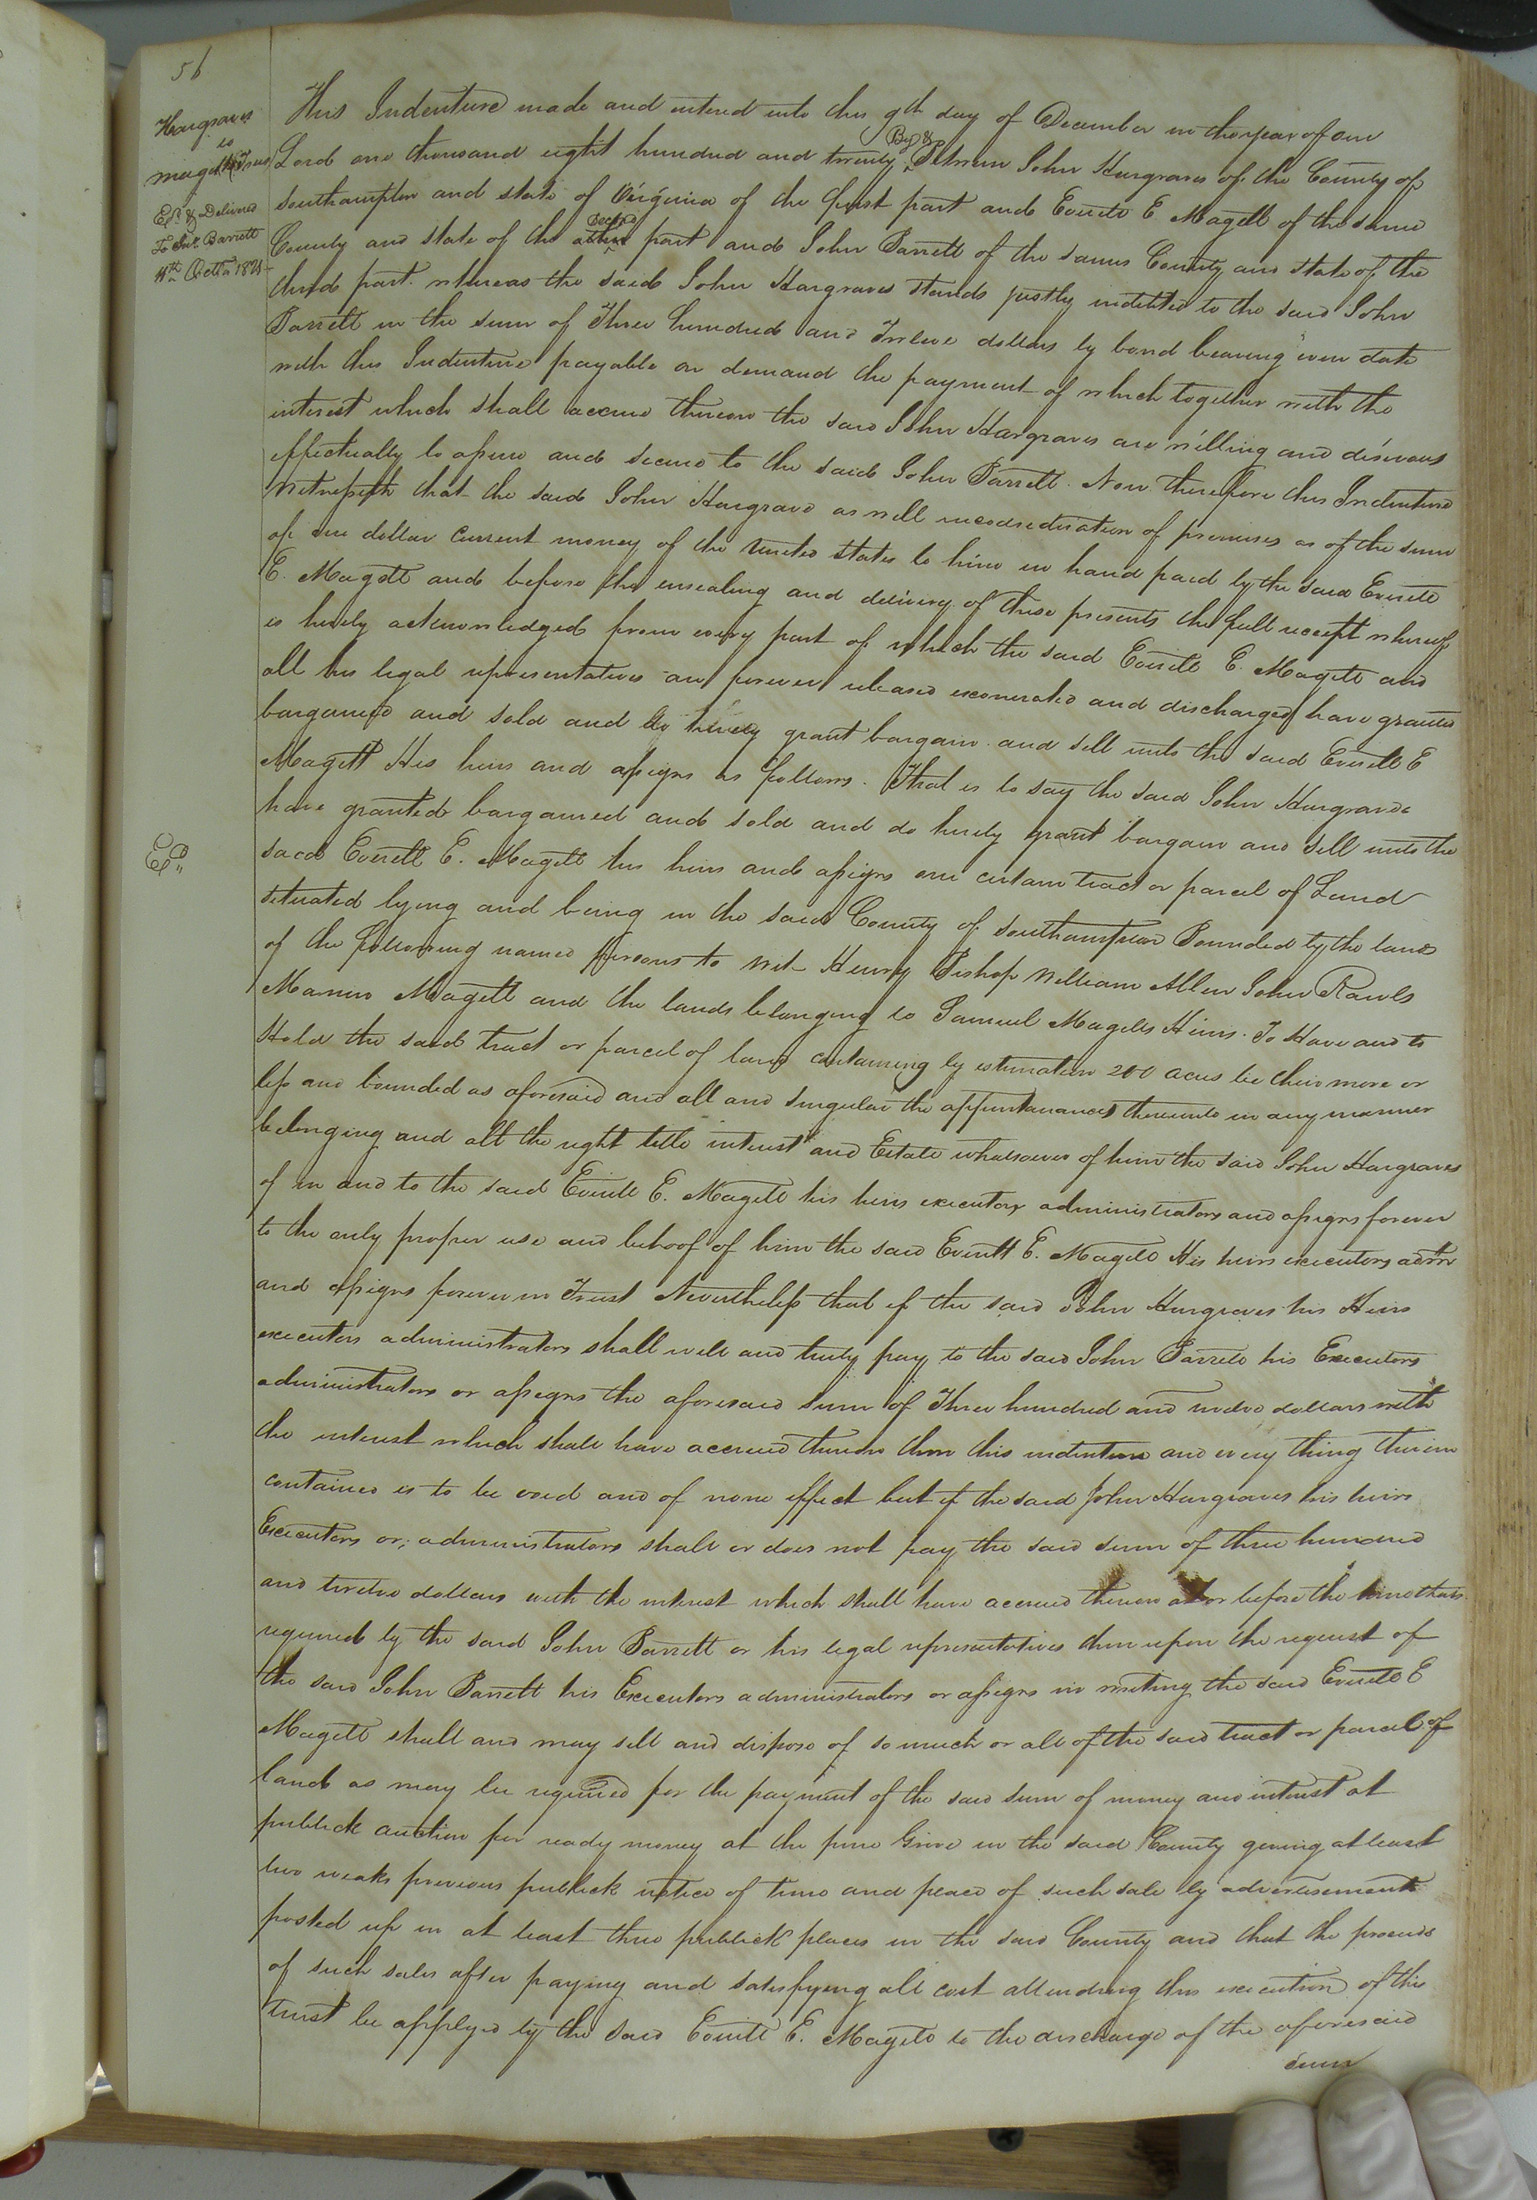 56
Hargraves
to
Magett (Trus
Ex.d & Delivered
To Jno. Barrett
11th Octr. 1821
This Indenture made and entered into this 9th day of December in the year of our
Lord one thousand eight hundred and twenty By & Between John Hargraves of the County of
Southampton and state of Virginia of the first part and Everitt E Magett of the same
County and state of the second part and John Barrett of the same County and state of the
third part. whereas the said John Hargraves stands justly indebted to the said John
Barrett in the sum of Three hundred and Twelve dollars by bond bearing even date
with this Indenture payable on demand the payment of which together with the
interest which shall accrue thereon the said John Hargraves are willing and desirous
effectually to assure and secure to the said John Barrett. Now therefore this Indenture
Witnesseth that the said John Hargrave as well inconsideration of premises as of the sum
of one dollar current money of the United States to him in hand paid by the said Everitt
E. Magett and before the ensealing and delivery of these presents the full receipt whereof
is hereby acknowledged from every part of which the said Everitt E. Magett and
all his legal representatives are forever released exonerated and discharged have granted
bargained and sold and do hereby grant bargain and sell unto the said Everitt E
Magett His heirs and assigns as follows. That is to say the said John Hargrave
have granted bargained and sold and do hereby grant bargain and sell unto the
said Everitt E. Magett his heirs and assigns one certain tract or parcel of Land
situated lying and being in the said County of Southampton Bounded by the lands
of the following named persons to wit Henry Bishop William Allen John Rawls
Magett and the lands belonging to Samuel Magetts Heirs. To Have and to
Hold the said tract or parcel of land containing by estimation 200 acres be their more or
less and bounded as aforesaid and all and singular the appurtanances thereunto in any manner
belonging and all the right title interest and Estate whatsoever of him the said John Hargraves
of in and to the said Everitt E. Magett his heirs executors administrators and assigns forever
to the only proper use and behoof of him the said Everitt E. Magett His heirs executors admr
and assigns forever in Trust Nevertheless that if the said John Hargraves his Heirs
executors administrators shall well and truly pay to the said John Barrett his Executors
administrators or assigns the aforesaid sum of Three hundred and twelve dollars with
the interest which shall have accrued thereon then this indenture and every thing therein
contained is to be void and of none effect but if the said John Hargraves his heirs
Executors or administrators shall or does not pay the said sum of three hundred
and twelve dollars with the interest which shall have accrued thereon at or before the time thats
required by the said John Barrett or his legal representatives then upon the request of
the said John Barrett his Executors administrators or assigns in writing the said Everitt E
Magett shall and may sell and dispose of so much or all of the said tract or parcel of
land as may be required for the payment of the said sum of money and interest at
publick auction for ready money at the pine Grove in the said County giving at least
two weaks previous publick notice of time and place of such sale by advertisements
posted up in at least three publick places in the said County and that the proceeds
of such sales after paying and satisfying all cost attending this execution of this
trust be applyed by the said Everitt E. Magett to the discharge of the aforesaid
sum